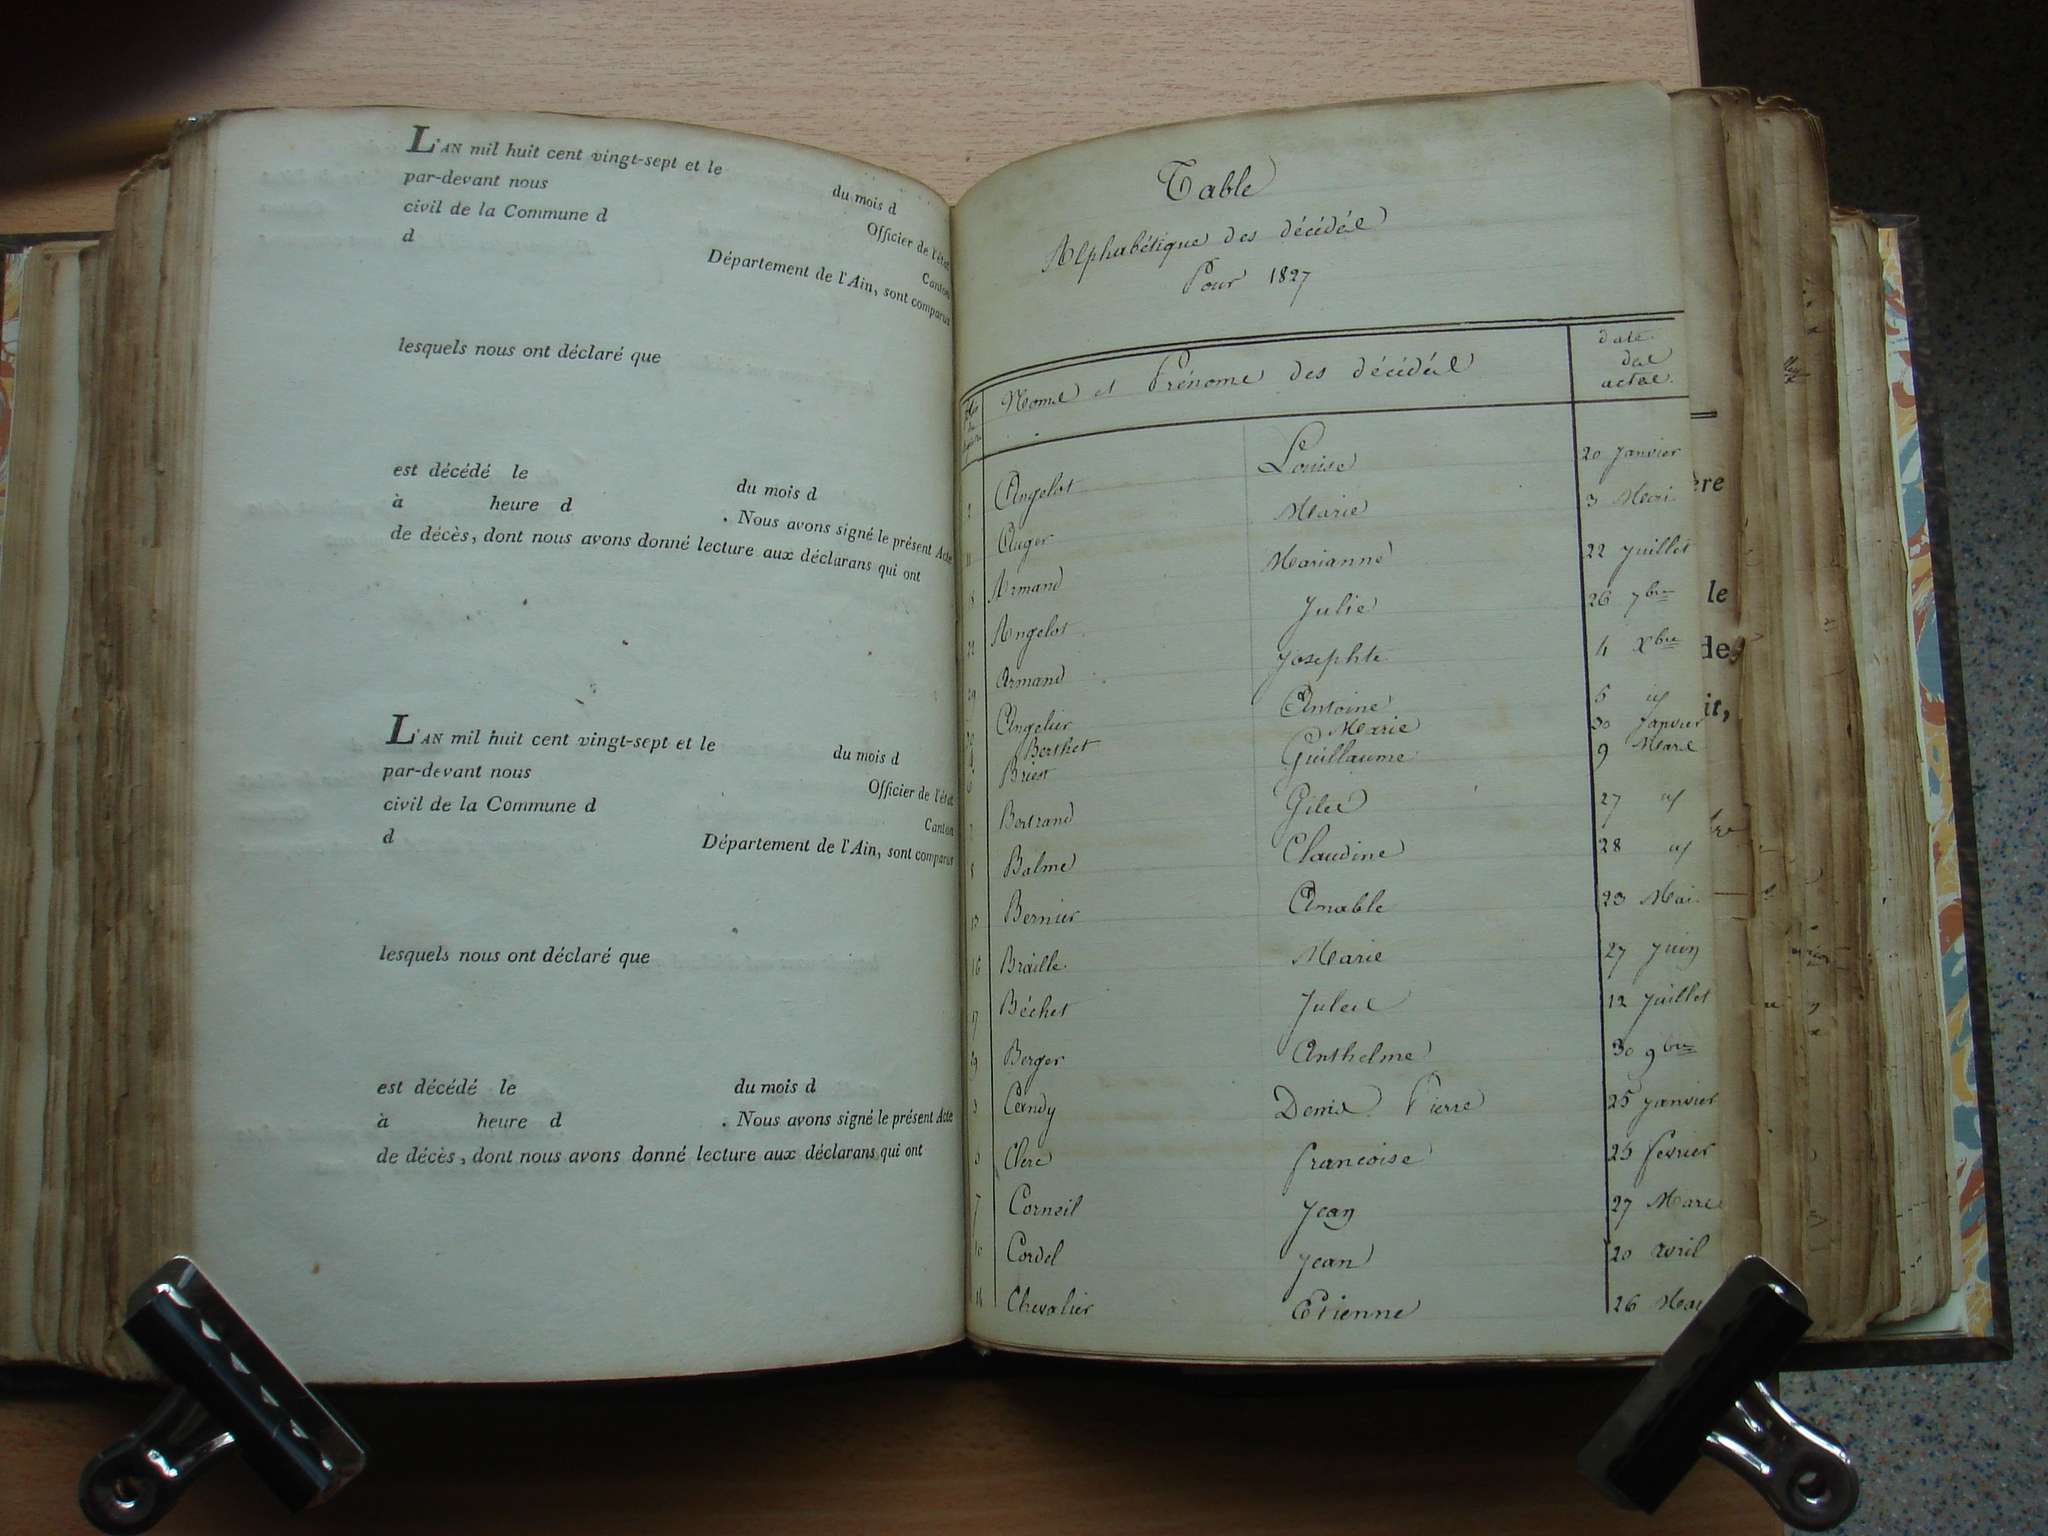 L'AN mil huit cent vingt-sept et le du mois d
par-devant nous Officier de l'état
civil de la Commune d Canton
d Département de l'Ain, sont comparus
lesquels nous ont déclaré que
est décédé le du mois d
à heure d . Nous avons signé le présent Acte
de décès, dont nous avons donné lecture aux déclarans qui ont
L'AN mil huit cent vingt-sept et le du mois d
par-devant nous Officier de l'état
civil de la Commune d Canton
d Département de l'Ain, sont comparus
lesquels nous ont déclaré que
est décédé le du mois d
à heure d . Nous avons signé le présent Acte
de décès, dont nous avons donné lecture aux déclarans qui ont
Table
Alphabétique des décédés
Pour 1827
Noms et Prénoms des décédés date des actes
Angelot Louise 20 Janvier
Auger Marie 3 Mai
Armand Marianne 22 Juillet
Angelot Julie 26 7bre
22 Armand Josephte 4 Xbre
29 Angelier Antoine 5 id
Berthet Marie 30 Janvier
Briest Guillaume 9 Mars
Bertrand Giles 27 id
Balme Claudine 28 id
13 Bernier Amable 23 Mai
16 Braille Marie 27 Juin
17 Béchet Jules 12 Juillet
Berger Anthelme 30 9bre
3 Cerndy Denis Pierre 25 Janvier
Clerc francoise 25 fevrier
7 Corneil Jean 27 Mars
10 Cordel Jean 20 avril
14 Chevalier Etienne 26 Mai
ère
le
de
it,